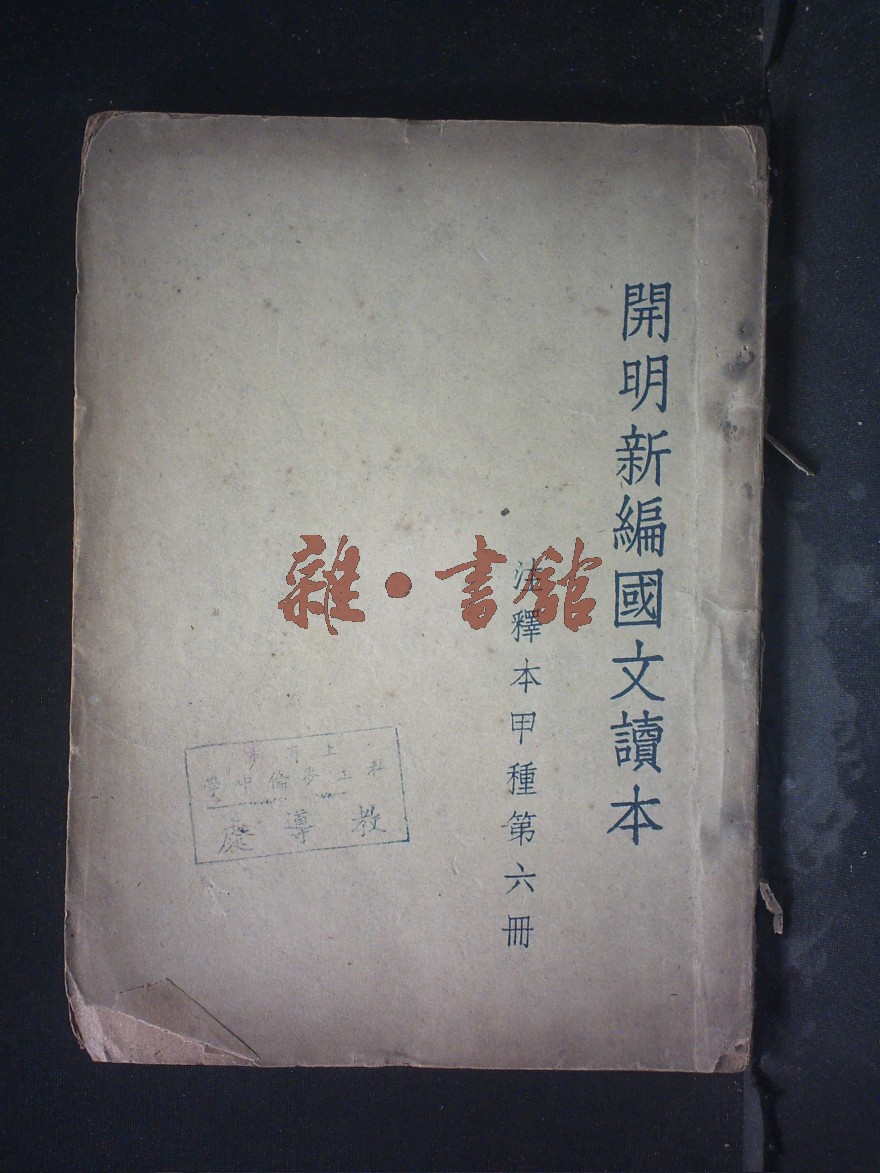 開明新編國文讀本
注釋本甲種第六冊
雜·書館
上海市
私立麥倫中學
教導處